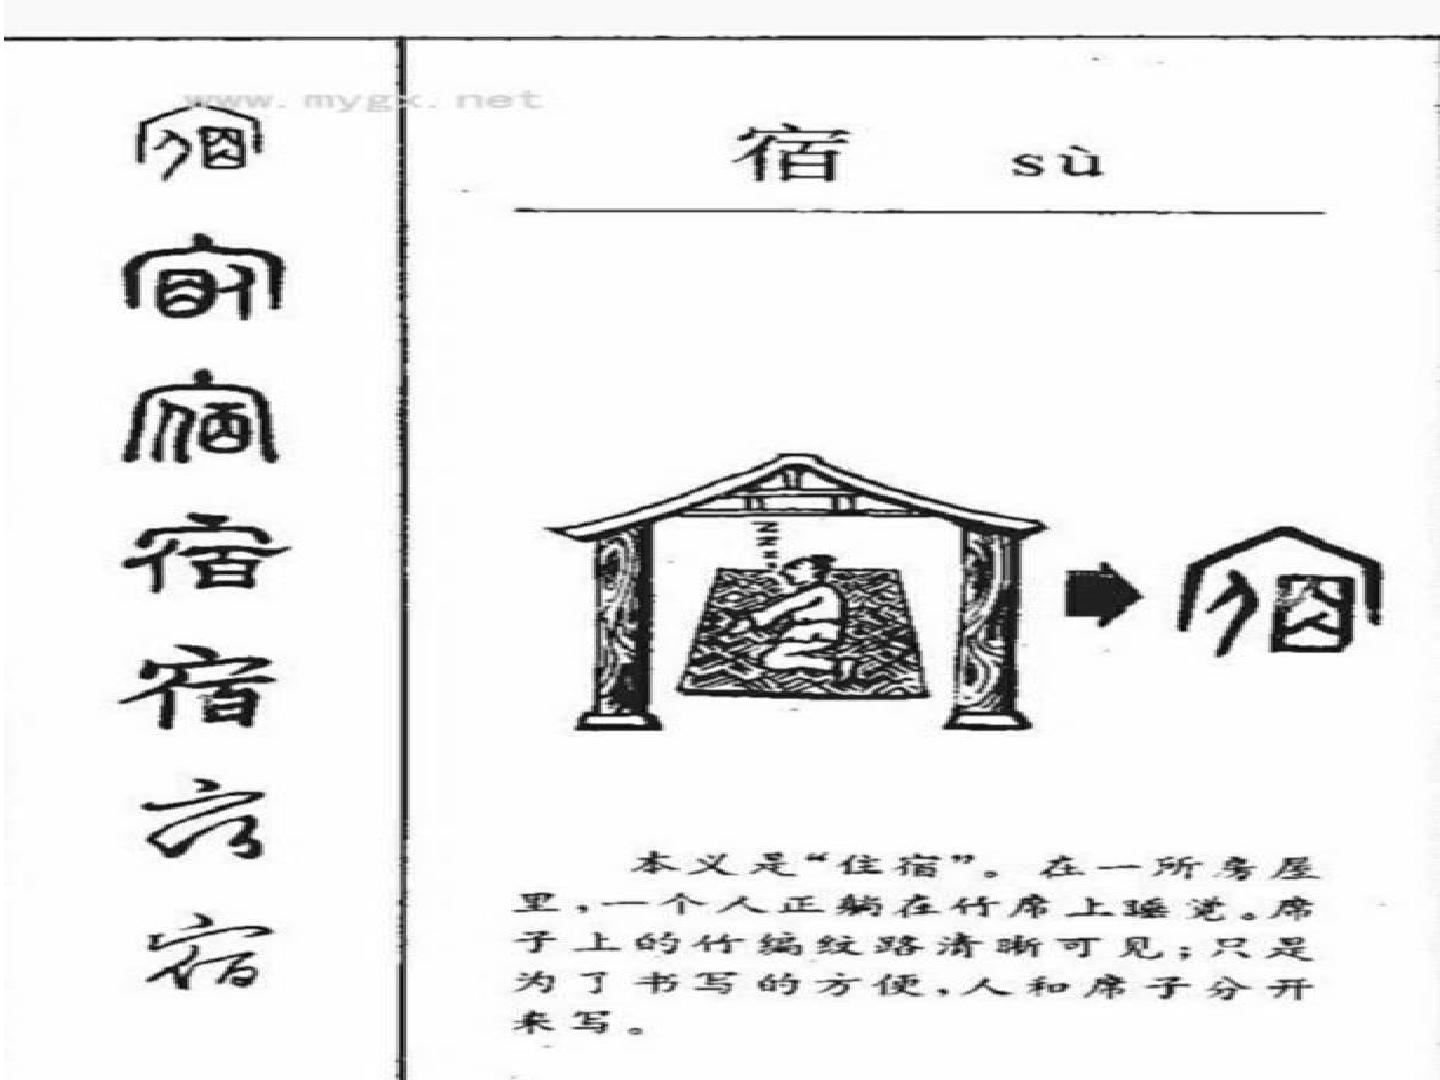 www.mygx.net
宿 sù
宿
宿
宿
宿
宿
宿
宿
zzz
宿
本义是“住宿”。在一所房屋
里，一个人正躺在竹席上睡觉。席
子上的竹编纹路清晰可见；只是
为了书写的方便，人和席子分开
来写。